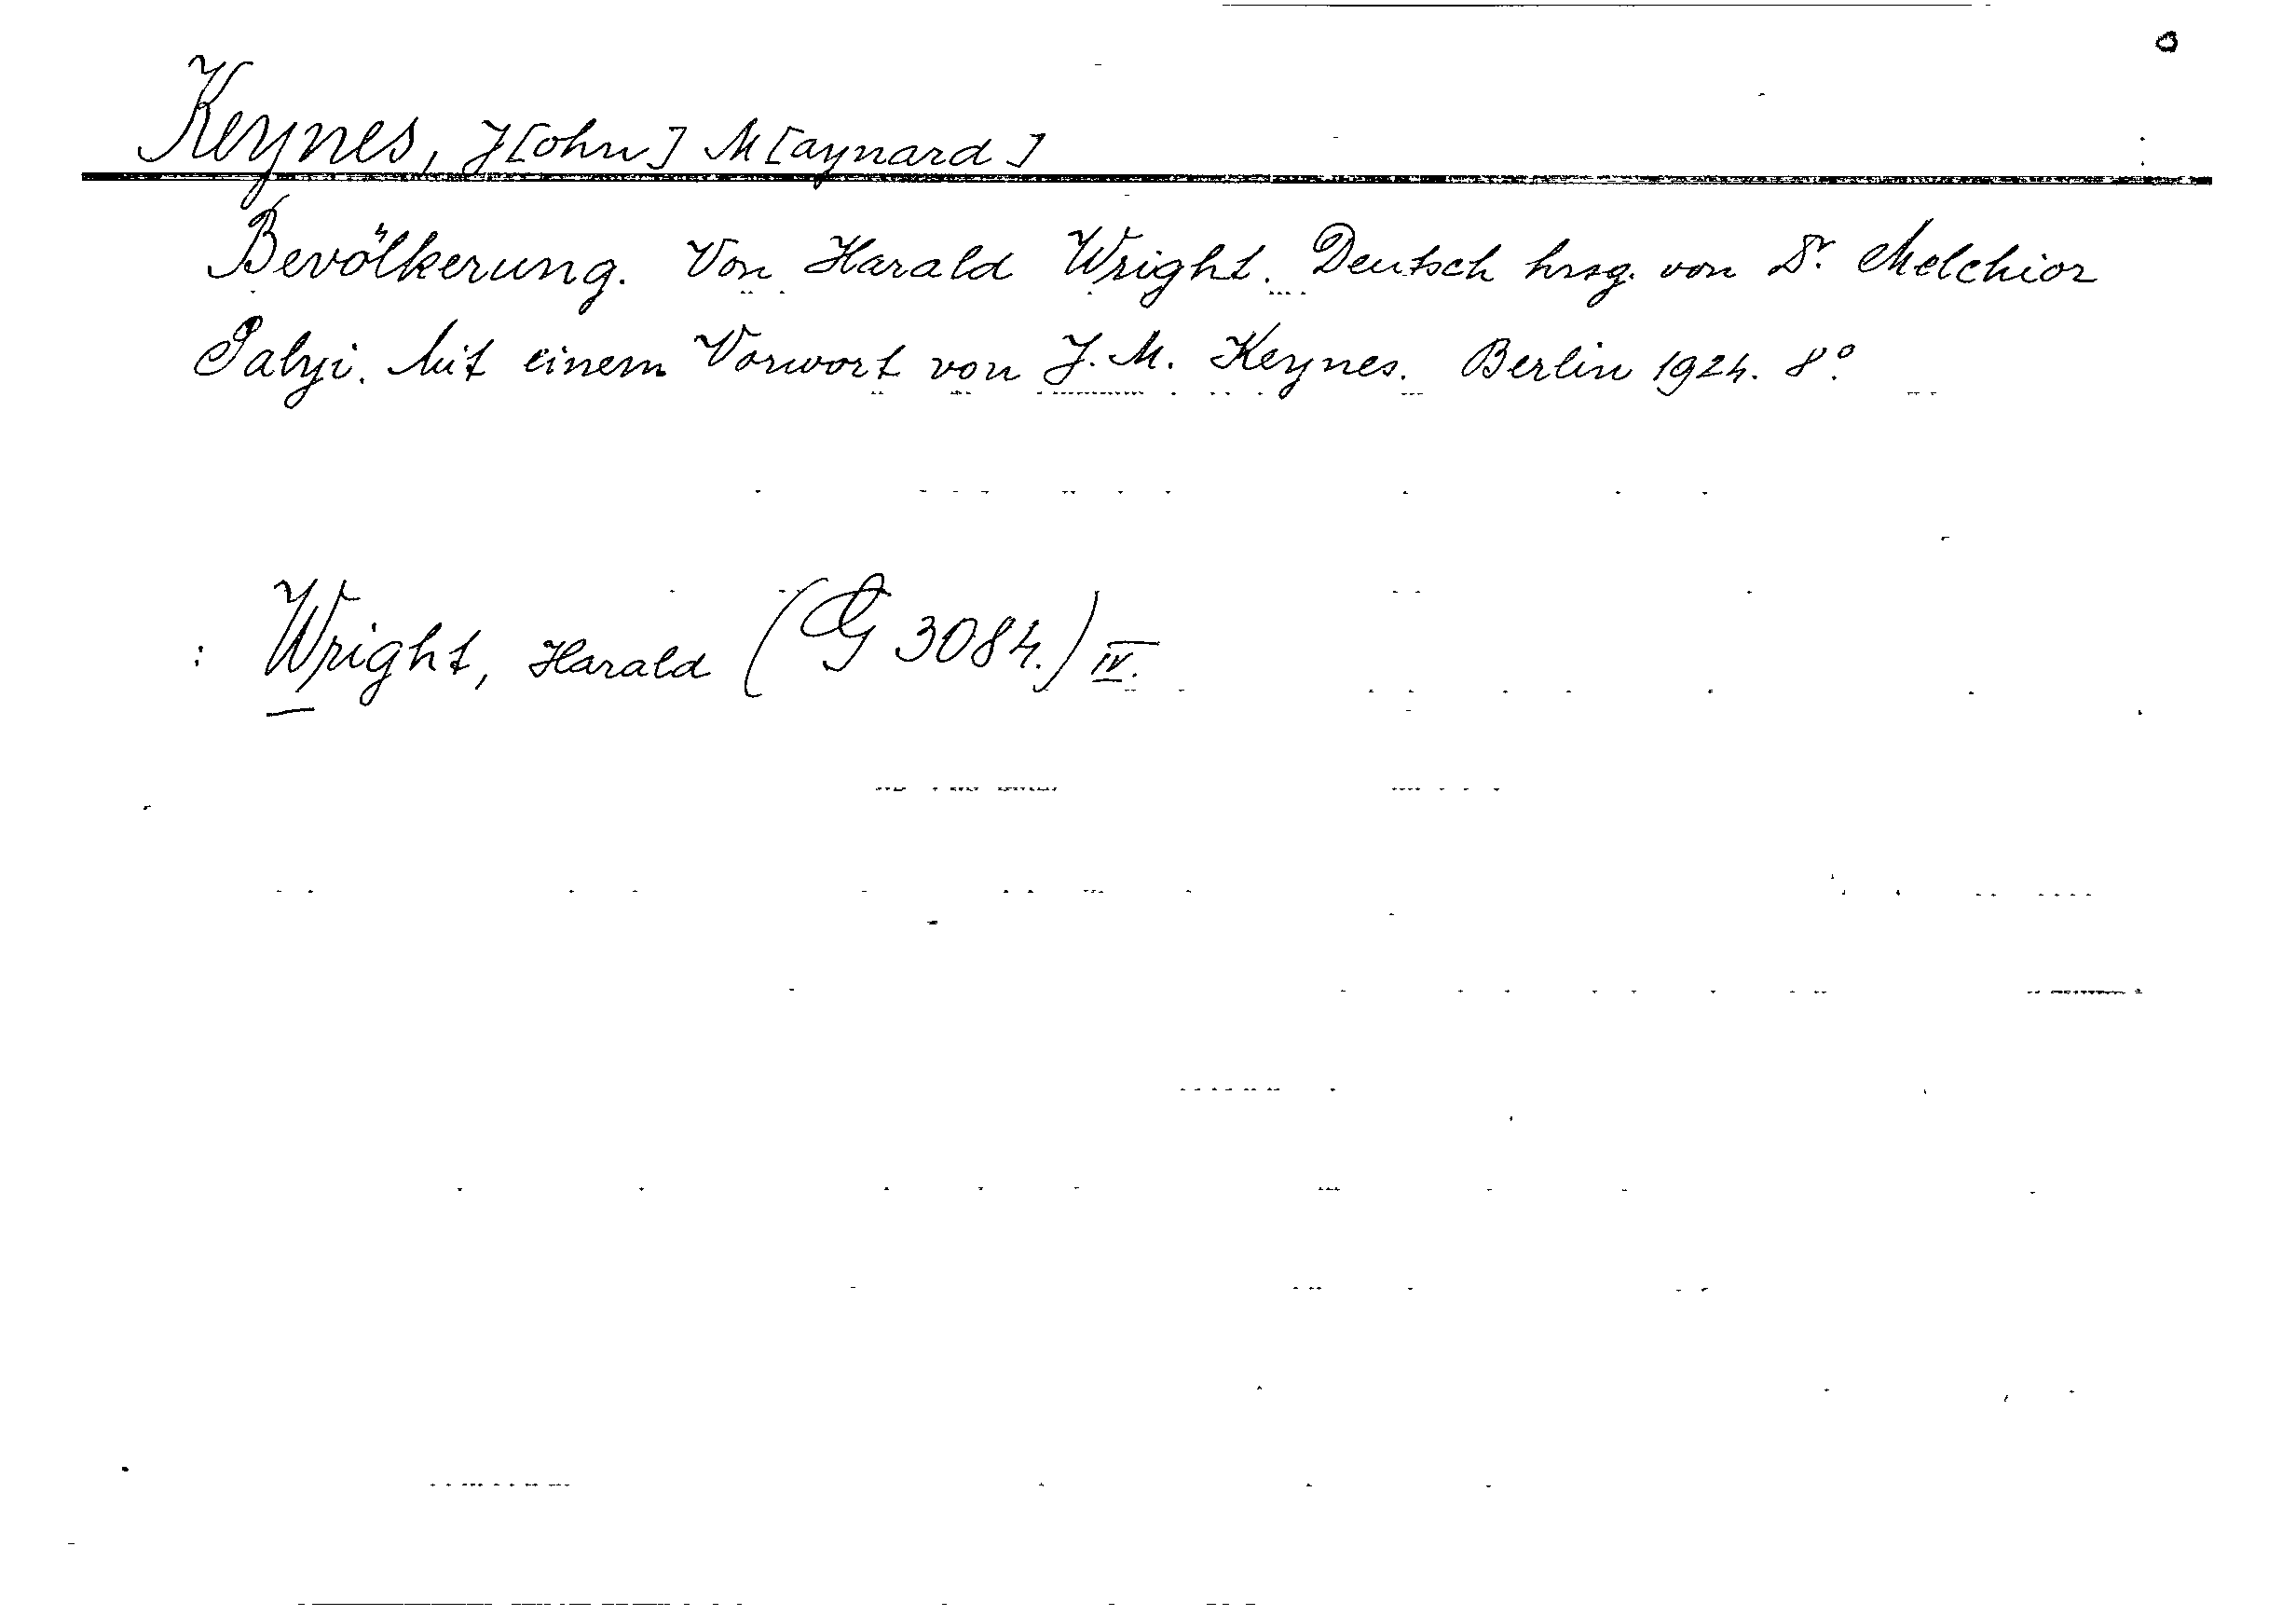 Keynes, J[ohn] M[aynard]
Bevölkerung. Von Harald Wright. Deutsch hrsg. von Dr. Melchior
Palyi. Mit einem Vorwort von J. M. Keynes. Berlin 1924. 8°.
: Wright, Harald (G 3084.) IV.